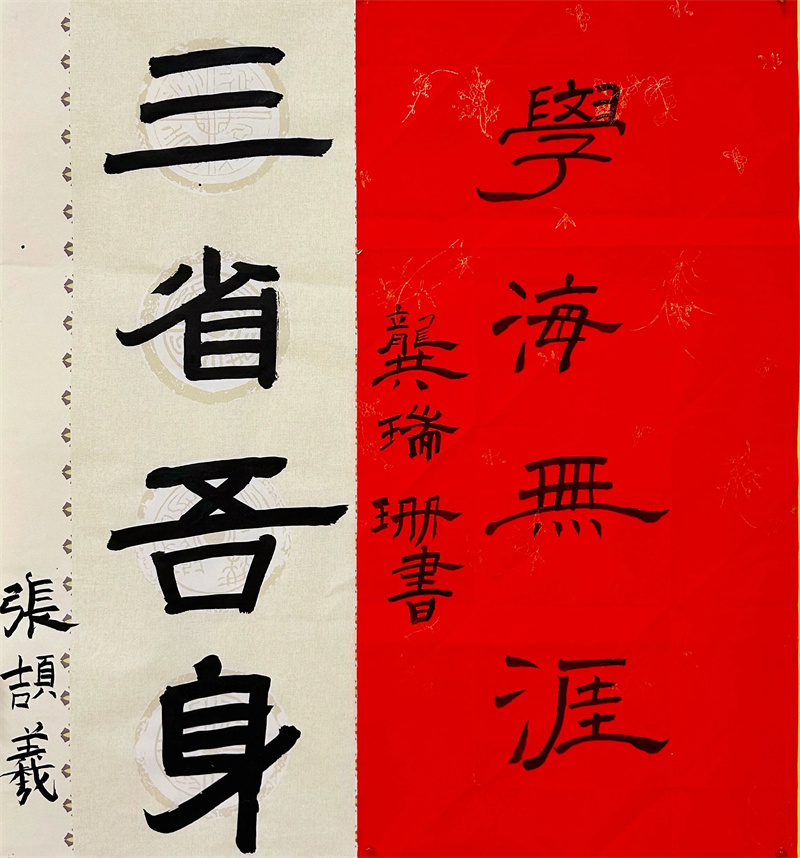 學海無涯
龔瑞珊書
三省吾身
張頡義